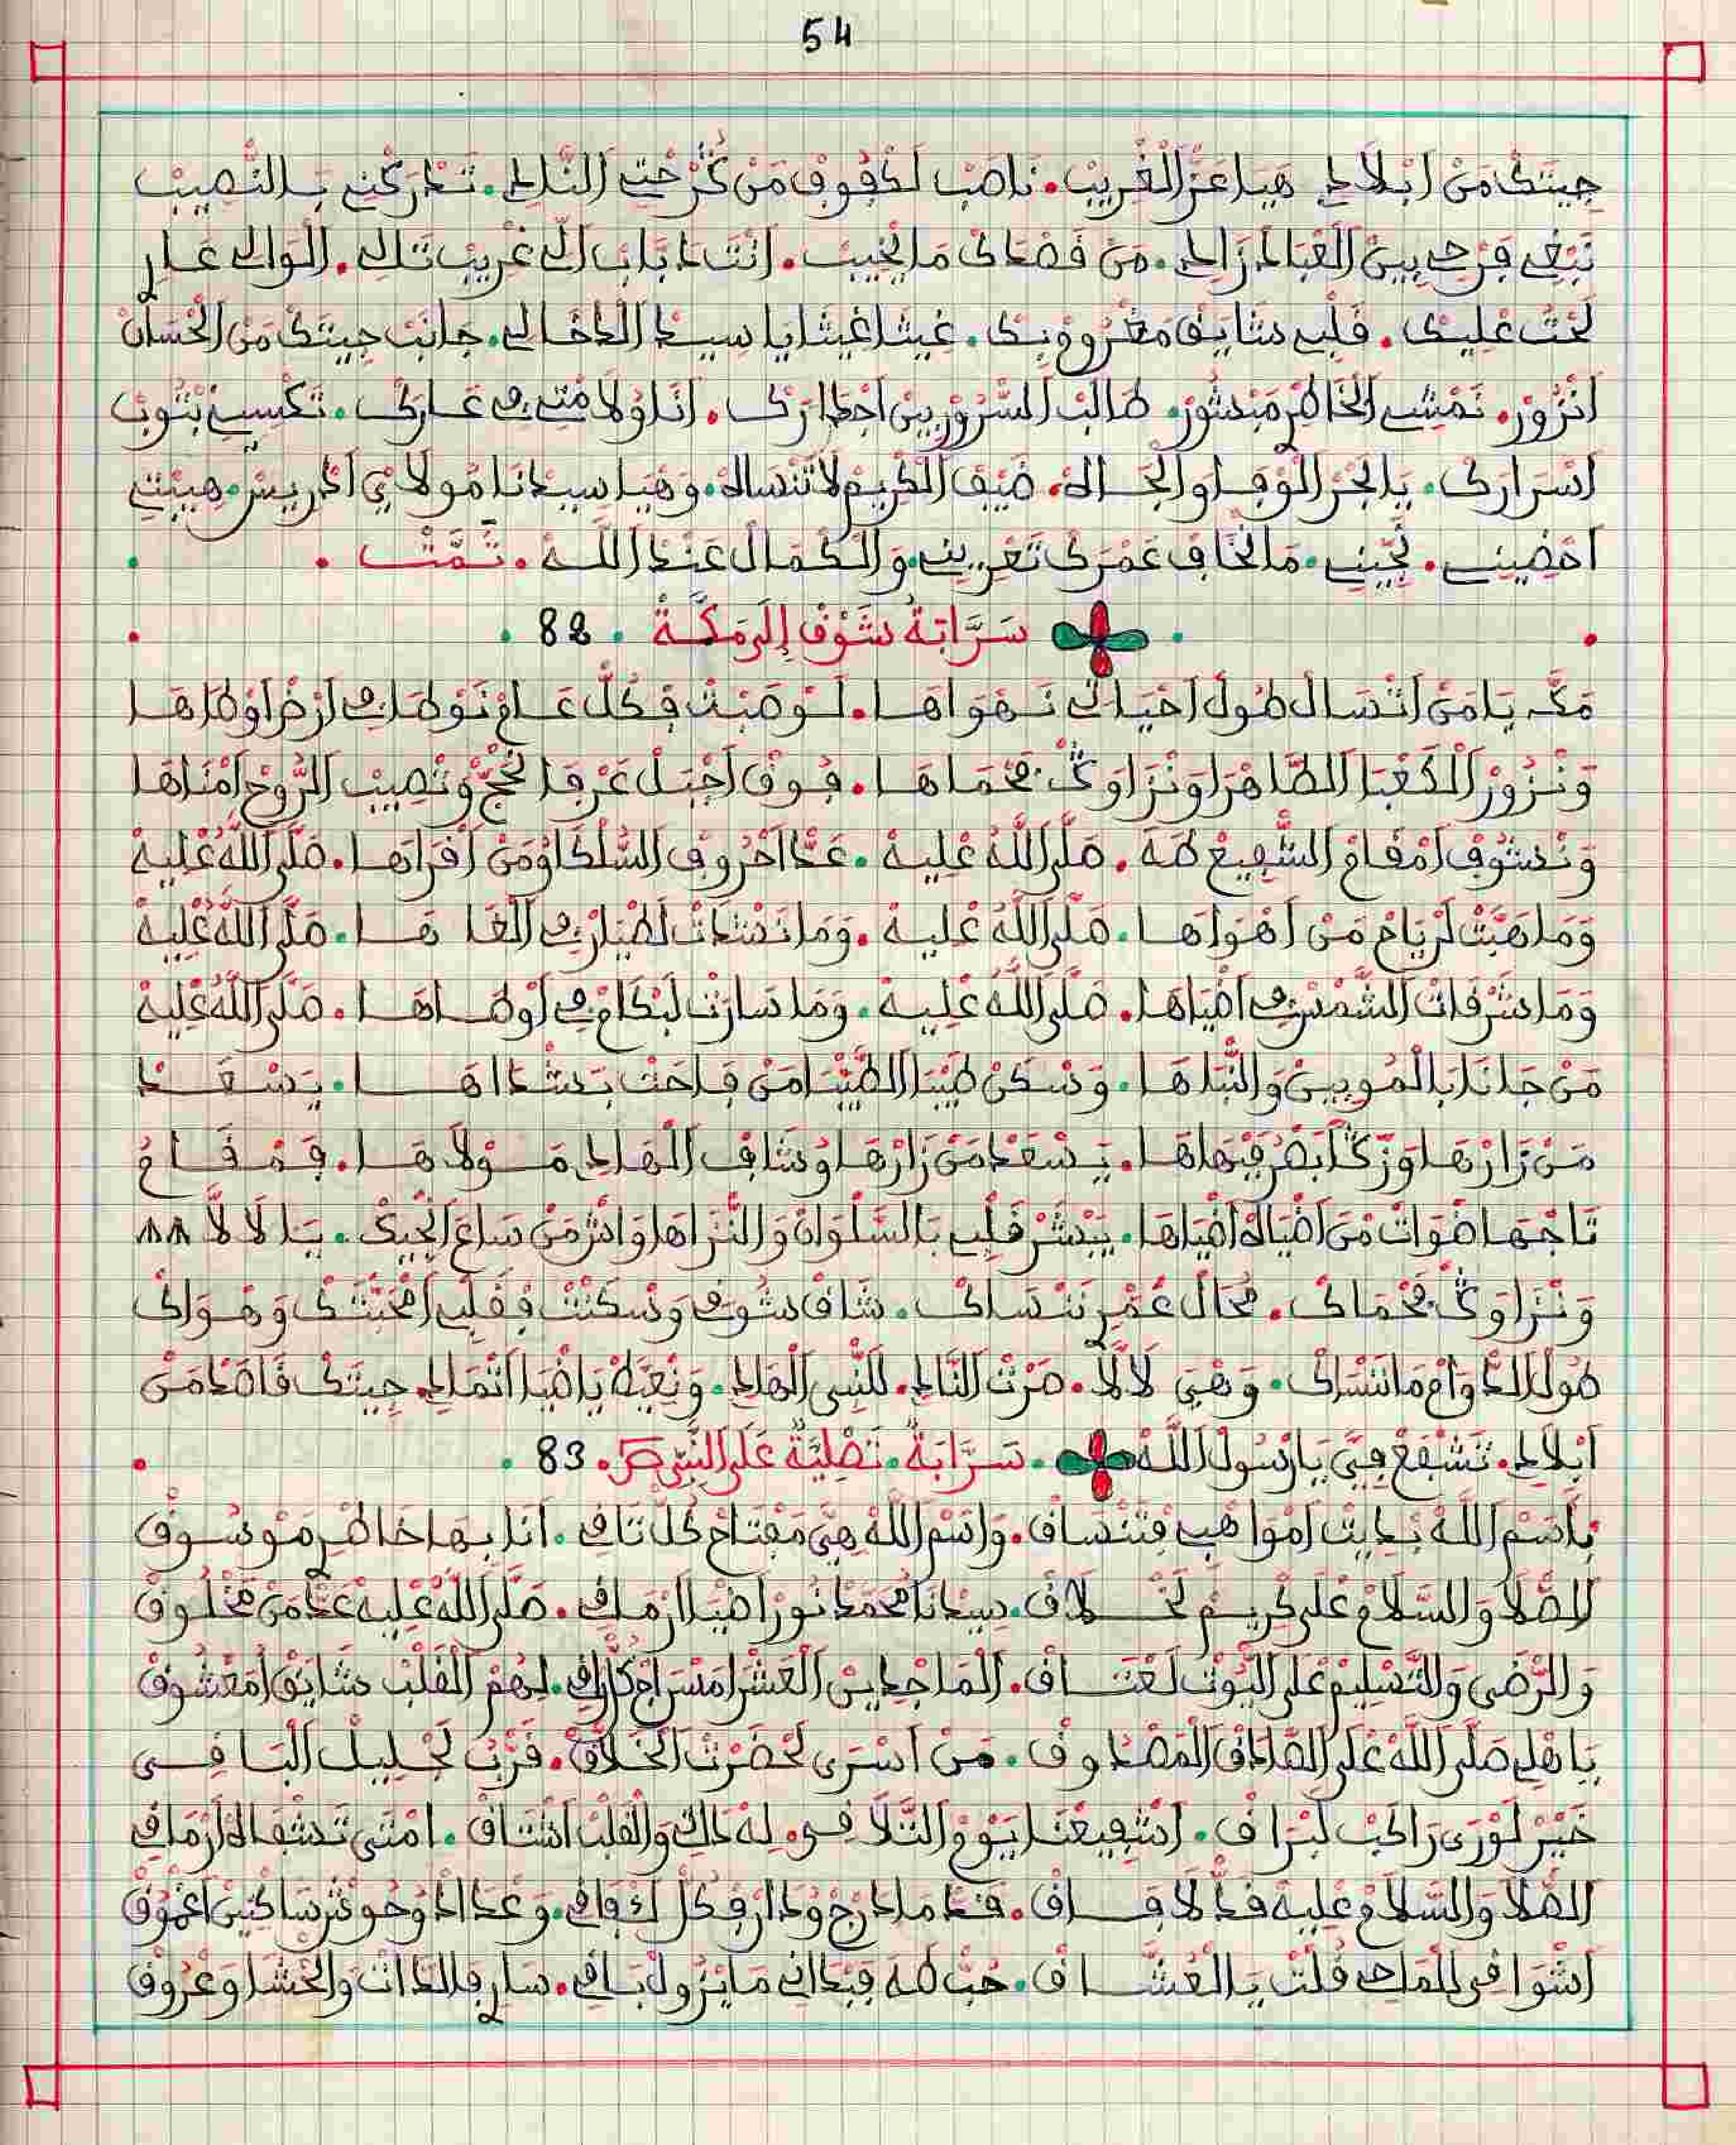 54
جِيتَكْ مَنْ اَبْلَادِي هَيَا عَزّ الْغْرِيبْ. نَاصَبْ لَكْفُوفْ مَنْ كُثْرْ حْتِي النَّادِي. تَدَرَكْنِي بَالنّْصِيبْ
نَبْغِي فَرْحِي بِينْ الَعْبَادْ زَادِي. مَنْ قَصْدَكْ مَا يْخِيبْ. اَنْتَ بَابْ الْغْرِيبْ تَاكِي. الْوَالِي عَارِ
لَحْتْ عْلِيكْ. قَلْبِي شَايَقْ مَغْرُومْ بِكْ. غِيثَا غِيثَا يَا سِيدْ الدْخَالِي. جَانَبْ جِيتَكْ مَنْ الْحْسَانْ
اَنْزُورْ. نَمْشِي الْخَاطَرْ مَبْشُورْ. طَالَبْ السّْرُورْ بِينْ اجْدَارَكْ. اَنَا وُلَامْتِي فِي عَارَكْ. تَكْسِينِي بْثُوبْ
اَسْرَارَكْ. يَا بْحَرْ الْوْفَا وَالْجَاهْ. ضِيفْ الْكْرِيمْ لَا تَنْسَاهْ. وَهْيَا سِيدْنَا مُولَايْ اَدْرِيسْ. هِيبْتِي
اَحْضِينِي. نَجِّينِي. مَا نْخَافْ عَمْرَكْ تَعْرِينِي. وَالْكْمَالْ عَنْدْ اللَّه. تَمَّتْ.
سَرَّابَةُ شَوْقْ إِلَى مَكَّةْ. 82.
مَكَّه يَا مَنْ اَتْسَالْ طُولْ اَحْيَاتِي نَهْوَاهَا. لَوْصَبْتْ فِكُلّْ عَامْ نَوْطَا فِي اَرْضْ اَوْطَاهَا
وَنْزُورْ الْكَعْبَا الطَّاهْرَا وَنْزَاوَكْ فَحْمَاهَا. فُوقْ اَجْبَلْ عَرْفَا نْحَجّْ وَنْصِيبْ الرُّوحْ اَمْنَاهَا
وَنْشُوفْ اَمْقَامْ الشّْفِيعْ طَهَ. صَلَّى اللَّهُ عْلِيهْ. عَدّْ اَحْرُوفْ السُّلْكَا وْمَنْ اَقْرَاهَا. صَلَّى اللَّهُ عْلِيهْ
وَمَا هَبَّتْ لَرْيَاحْ مَنْ اَهْوَاهَا. صَلَّى اللَّهُ عْلِيهْ. وَمَا نَشْدَاتْ لَطْيَارْ فِي الْغَاهَا. صَلَّى اللَّهُ عْلِيهْ
وَمَا شَرْقَاتْ الشَّمْسْ فِي اَضْيَاهَا. صَلَّى اللَّهُ عْلِيهْ. وَمَا سَارَتْ لَبْكَامْ فِي اَوْطَاهَا. صَلَّى اللَّهُ عْلِيهْ
مَنْ جَانَا بَالْمُوبِينْ وَالنّْبَاهَا. وَسْكَنْ طِيبَا الطَّيّْبَا مَنْ فَاحَتْ بَشْدَاهَا. يَسْعَدْ
مَنْ زَارْهَا وَزَكَّا بَصْرْ فَبْهَاهَا. يَسْعَدْ مَنْ زَارْهَا وْشَافْ الْهَادِي مَوْلَاهَا. فَمْقَامْ
تَاجْهَا ضْوَاتْ مَنْ اَضْيَاهْ اَضْيَاهَا. يَبْشَرْ قَلْبِي بَالسَّلْوَانْ وَالنّْزَاهَا وَاثْرْ مَنْ سَاعْ اَنْجِيكْ. يَا لَا لَّا ۸۸
وَنْزَاوَكْ فَحْمَاكْ. مُحَالْ عُمْرِ نَنْسَاكْ. شَاقْ شُوقِ وَسْكَنْتْ فْقَلْبِي اَمْحَبّْتَكْ وَهْوَاكْ
طُولْ الدّْوَامْ مَا نَنْسَاكْ. وَهْيَ لَا لَّا. صَرْتْ النَّادِي. لَلنّْبِي الْهَادِي. وَنْعَيَّطْ يَا ضْيَا اَثْمَادِي. جِيتَكْ قَاصَدْ مَنْ
اَبْلَادِي. تَشْفَعْ فِيَّ يَا رَسُولَ اللَّهْ. سَرَّابَةٌ. تَصْلِيَةٌ عَلَى النَّبِي ص. 83.
بَاسْمْ اللَّهْ بْدِيتْ اَمْوَاهْبِي فْتَنْسَاقْ. وَاسْمْ اللَّهْ هِيَّ مَفْتَاحْ كُلّْ تَاقِي. اَنَا بِهَا خَاطْرِ مَوْسُوقْ
الصّْلَا وَالسّْلَامْ عْلَى كْرِيمْ لَخْلَاقْ. سِيدْنَا مُحَمَّدْ نُورْ اَضْيَا ارْمَاقِي. صَلَّى اللَّهُ عْلِيهْ عَدّْ مَنْ مَخْلُوقْ
وَالرّْضَى وَالتَّسْلِيمْ عْلَى الْيُوتْ لَعْتَاقْ. الْمَاجْدِينْ الْعَشْرَا مَسْرَاجْ. لِهُمْ الْقَلْبْ شَايَقْ اُمَعْشُوقْ
يَا هْلِي صَلَّى اللَّهْ عْلَى الصَّادَقْ الْمَصْدُوقْ. مَنْ اَسْرَى لْحَضْرَتْ الْخَلَّاقْ. قَرّْبُ لَجْلِيلْ الْبَاقِي
خَيْرْ لَوْرَى رَاكَبْ لَبْرَاقْ. اَشْفِيعْنَا يَوْمْ التّْلَاقِي. لِهْ ذَاتِي وَالْقَلْبْ اَشْتَاقْ. امْتَى تَشْفَاهْ اَرْمَاقِي
الصّْلَا وَالسّْلَامْ عْلِيهْ قَدّْ لَافَاقْ. قَدّْ مَا دَارَجْ وُدَارْ فِكُلّْ. وَعْدَادْ وُحُوشْ سَاكْنِينْ اَغْمُوقْ
اَشْوَاقِي لَلْمَاحِي قُلْتْ يَا الْعُشَّاقْ. حُبّْ طَهَ فِبْدَانِي مَا يْزُولْ بَاقِي. سَارِ فَالدَّاتْ وَالْحْشَا وَعْرُوقْ